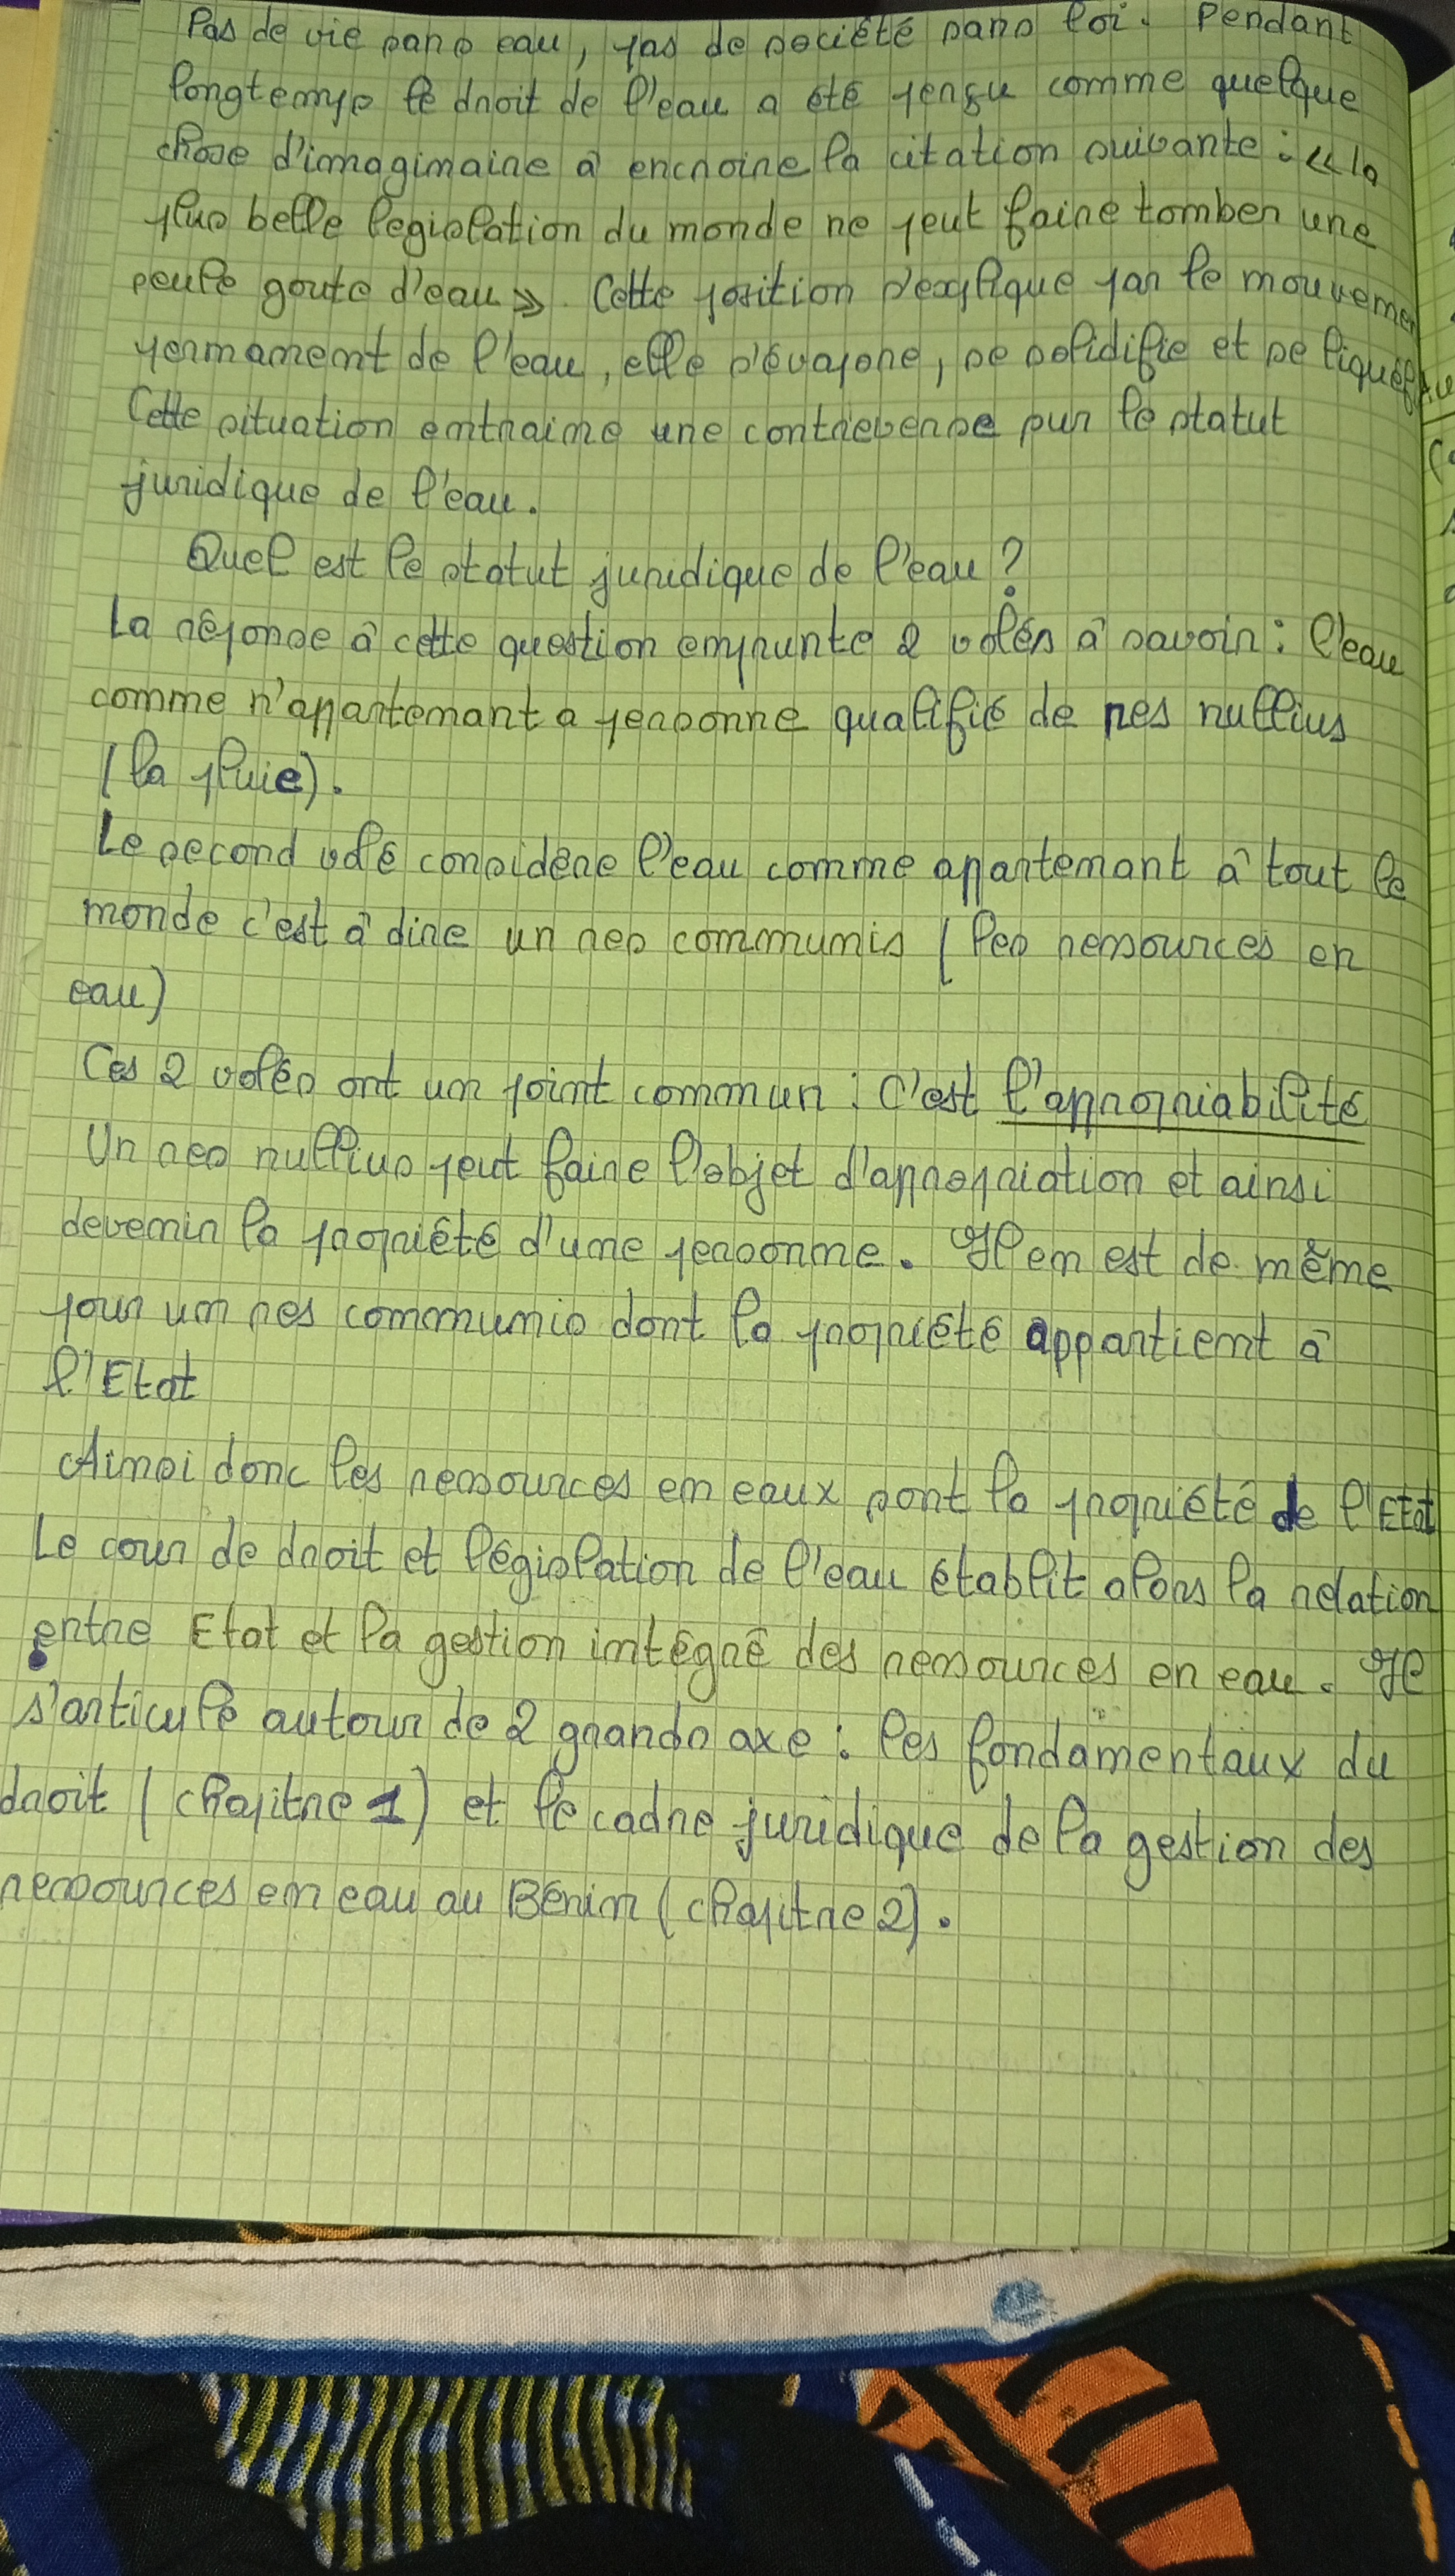 Pas de vie sans eau, pas de société sans loi. Pendant
longtemps le droit de l'eau a été perçu comme quelque
chose d'imaginaire à encroire la citation suivante : « la
plus belle legislation du monde ne peut faire tomber une
seule goute d'eau ». Cette position s'explique par le mouvemen
permament de l'eau, elle s'évapore, se solidifie et se liquéfi
Cette situation entraine une contreverse sur le statut
juridique de l'eau.
Quel est le statut juridique de l'eau ?
La réponse à cette question emprunte 2 volés à savoir : l'eau
comme n'appartemant a personne qualifié de res nullius
(la pluie).
Le second volé considère l'eau comme apartemant à tout le
monde c'est à dire un res communis (les ressources en
eau)
Ces 2 volés ont un point commun : C'est l'appropriabilité
Un res nullius peut faire l'objet d'appropriation et ainsi
devenir la propriété d'une personne. Il en est de même
pour un res communis dont la propriété appartient à
l'Etat
Ainsi donc les ressources en eaux sont la propriété de l'Etat
Le cour de droit et législation de l'eau établit alors la relation
entre Etat et la gestion intégré des ressources en eau. Il
s'articule autour de 2 grands axe : les fondamentaux du
droit (chapitre 1) et le cadre juridique de la gestion des
ressources en eau au Bénin (chapitre 2).